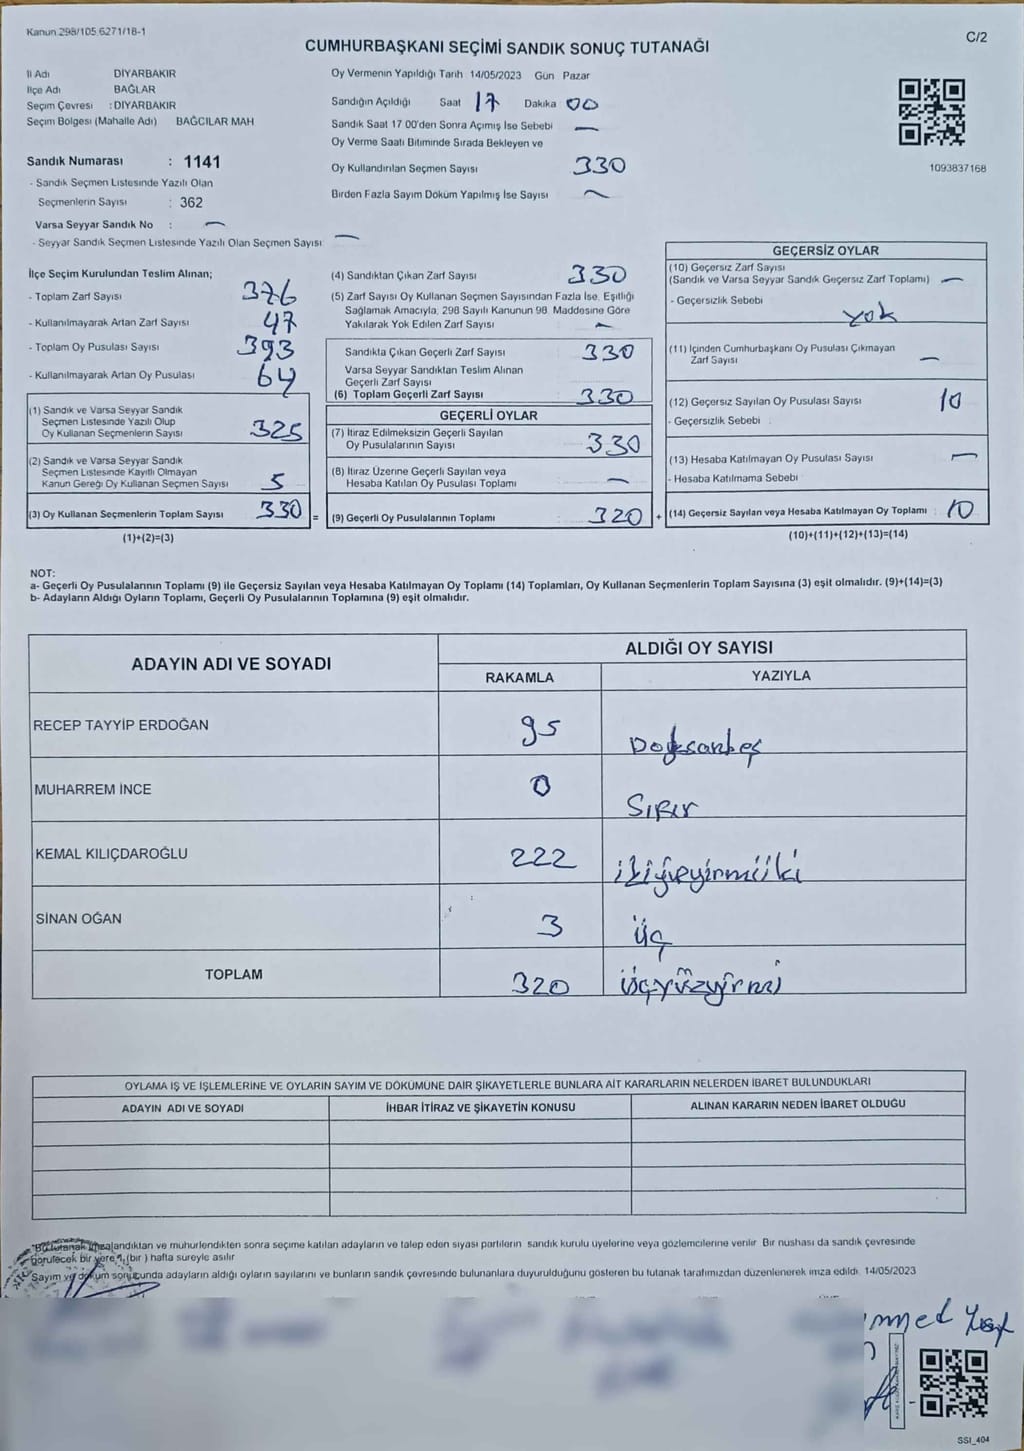 Kanun.298/105.6271/18-1
C/2
CUMHURBAŞKANI SEÇİMİ SANDIK SONUÇ TUTANAĞI
İl Adı DİYARBAKIR
İlçe Adı BAĞLAR
Seçim Çevresi : DİYARBAKIR
Seçim Bölgesi (Mahalle Adı) BAĞCILAR MAH
Oy Vermenin Yapıldığı Tarih 14/05/2023 Gün Pazar
Sandığın Açıldığı Saat 17 Dakika 00
Sandık Saat 17 00'den Sonra Açımış İse Sebebi —
Oy Verme Saati Bitiminde Sırada Bekleyen ve
Oy Kullandırılan Seçmen Sayısı 330
Birden Fazla Sayım Döküm Yapılmış İse Sayısı —
1093837168
Sandık Numarası : 1141
- Sandık Seçmen Listesinde Yazılı Olan
Seçmenlerin Sayısı : 362
Varsa Seyyar Sandık No : —
- Seyyar Sandık Seçmen Listesinde Yazılı Olan Seçmen Sayısı —
İlçe Seçim Kurulundan Teslim Alınan;
- Toplam Zarf Sayısı 376
- Kullanılmayarak Artan Zarf Sayısı 47
- Toplam Oy Pusulası Sayısı 393
- Kullanılmayarak Artan Oy Pusulası 64
(1) Sandık ve Varsa Seyyar Sandık
Seçmen Listesinde Yazılı Olup
Oy Kullanan Seçmenlerin Sayısı 325
(2) Sandık ve Varsa Seyyar Sandık
Seçmen Listesinde Kayıtlı Olmayan
Kanun Gereği Oy Kullanan Seçmen Sayısı 5
(3) Oy Kullanan Seçmenlerin Toplam Sayısı 330 =
(1)+(2)=(3)
(4) Sandıktan Çıkan Zarf Sayısı 330
(5) Zarf Sayısı Oy Kullanan Seçmen Sayısından Fazla İse, Eşitliği
Sağlamak Amacıyla, 298 Sayılı Kanunun 98. Maddesine Göre
Yakılarak Yok Edilen Zarf Sayısı —
Sandıkta Çıkan Geçerli Zarf Sayısı 330
Varsa Seyyar Sandıktan Teslim Alınan
Geçerli Zarf Sayısı
(6) Toplam Geçerli Zarf Sayısı 330
GEÇERLİ OYLAR
(7) İtiraz Edilmeksizin Geçerli Sayılan
Oy Pusulalarının Sayısı 330
(8) İtiraz Üzerine Geçerli Sayılan veya
Hesaba Katılan Oy Pusulası Toplamı —
(9) Geçerli Oy Pusulalarının Toplamı 320 +
GEÇERSİZ OYLAR
(10) Geçersiz Zarf Sayısı
(Sandık ve Varsa Seyyar Sandık Geçersiz Zarf Toplamı) —
- Geçersizlik Sebebi
Yok
(11) İçinden Cumhurbaşkanı Oy Pusulası Çıkmayan
Zarf Sayısı —
(12) Geçersiz Sayılan Oy Pusulası Sayısı 10
- Geçersizlik Sebebi :
(13) Hesaba Katılmayan Oy Pusulası Sayısı —
- Hesaba Katılmama Sebebi
(14) Geçersiz Sayılan veya Hesaba Katılmayan Oy Toplamı : 10
(10)+(11)+(12)+(13)=(14)
NOT:
a- Geçerli Oy Pusulalarının Toplamı (9) ile Geçersiz Sayılan veya Hesaba Katılmayan Oy Toplamı (14) Toplamları, Oy Kullanan Seçmenlerin Toplam Sayısına (3) eşit olmalıdır. (9)+(14)=(3)
b- Adayların Aldığı Oyların Toplamı, Geçerli Oy Pusulalarının Toplamına (9) eşit olmalıdır.
ADAYIN ADI VE SOYADI ALDIĞI OY SAYISI
RAKAMLA YAZIYLA
RECEP TAYYİP ERDOĞAN 95 Doksanbeş
MUHARREM İNCE 0 Sıfır
KEMAL KILIÇDAROĞLU 222 ikiyüzyirmiiki
SİNAN OĞAN 3 üç
TOPLAM 320 üçyüzyirmi
OYLAMA İŞ VE İŞLEMLERİNE VE OYLARIN SAYIM VE DÖKÜMÜNE DAİR ŞİKAYETLERLE BUNLARA AİT KARARLARIN NELERDEN İBARET BULUNDUKLARI
ADAYIN ADI VE SOYADI İHBAR İTİRAZ VE ŞİKAYETİN KONUSU ALINAN KARARIN NEDEN İBARET OLDUĞU
"Bu tutanak imzalandıktan ve mühürlendikten sonra seçime katılan adayların ve talep eden siyasi partilerin sandık kurulu üyelerine veya gözlemcilerine verilir Bir nüshası da sandık çevresinde
görülecek bir yere 1 (bir ) hafta süreyle asılır
Sayım ve döküm sonucunda adayların aldığı oyların sayılarını ve bunların sandık çevresinde bulunanlara duyurulduğunu gösteren bu tutanak tarafımızdan düzenlenerek imza edildi. 14/05/2023
SSI_404